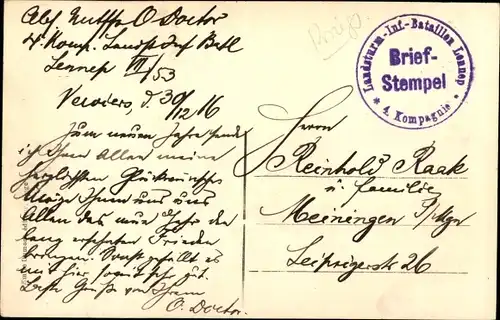 O. Doctor
4. Komp. Landst. Inf. Batl.
Lennep VII/53
Verviers, d. 30/12 16
Zum neuen Jahre sende
ich Ihnen Allen meine
herzlichsten Glückwünsche
Möge Ihnen uns uns
Allen das neue Jahr den
lang ersehnten Frieden
bringen. Sonst gefällt es
mir hier soweit gut.
Beste Grüße von Ihrem
O. Doctor.
Landsturm-Inf.-Bataillon Lennep
Brief-
Stempel
* 4. Kompagnie *
Herrn
Reinhold Raak
u. Familie
Meiningen
Leipzigerstr. 26